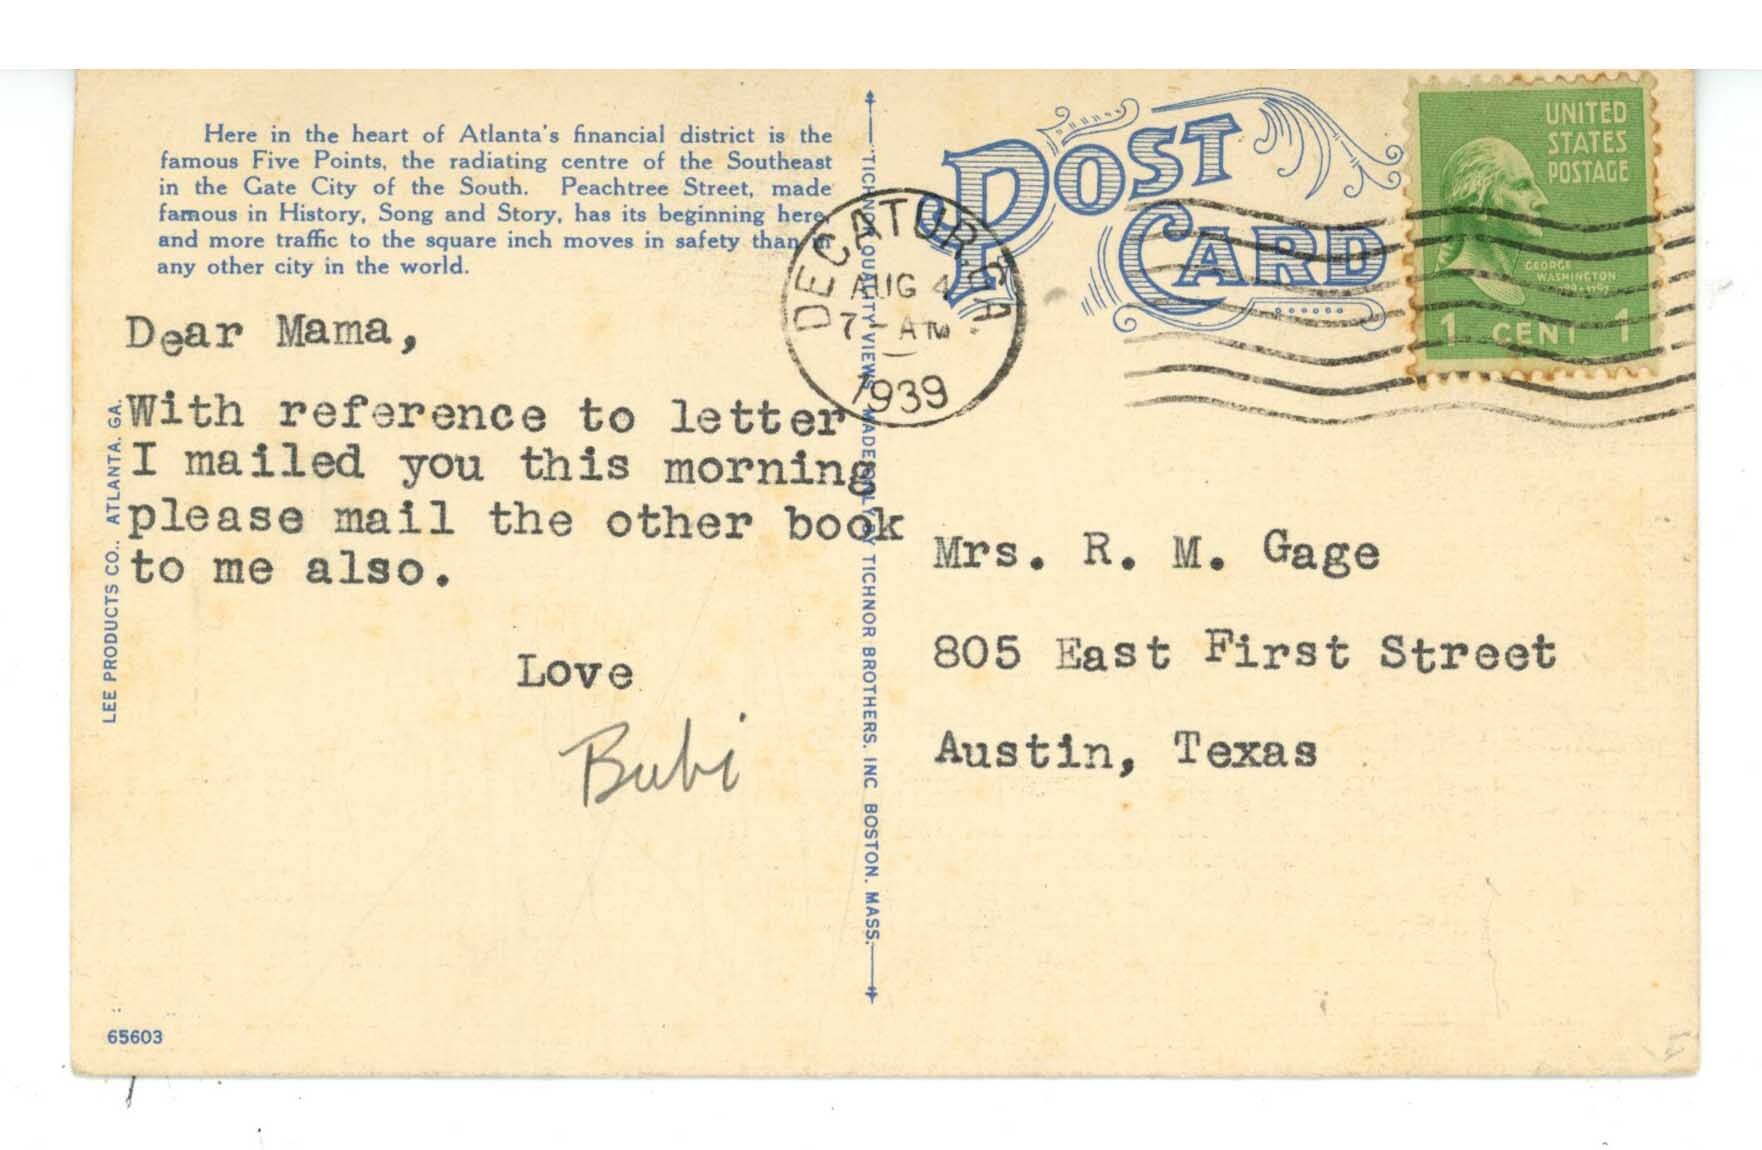 Here in the heart of Atlanta's financial district is the
famous Five Points, the radiating centre of the Southeast
in the Gate City of the South. Peachtree Street, made
famous in History, Song and Story, has its beginning here,
and more traffic to the square inch moves in safety than in
any other city in the world.
Dear Mama,
With reference to letter
I mailed you this morning
please mail the other book
to me also.
Love
Bubi
LEE PRODUCTS CO., ATLANTA, GA.
65603
"TICHNOR QUALITY VIEWS," MADE ONLY BY TICHNOR BROTHERS, INC. BOSTON, MASS.
POST
CARD
DECATUR, GA
AUG 4
7 - AM
1939
UNITED
STATES
POSTAGE
GEORGE
WASHINGTON
1 CENT 1
Mrs. R. M. Gage
805 East First Street
Austin, Texas